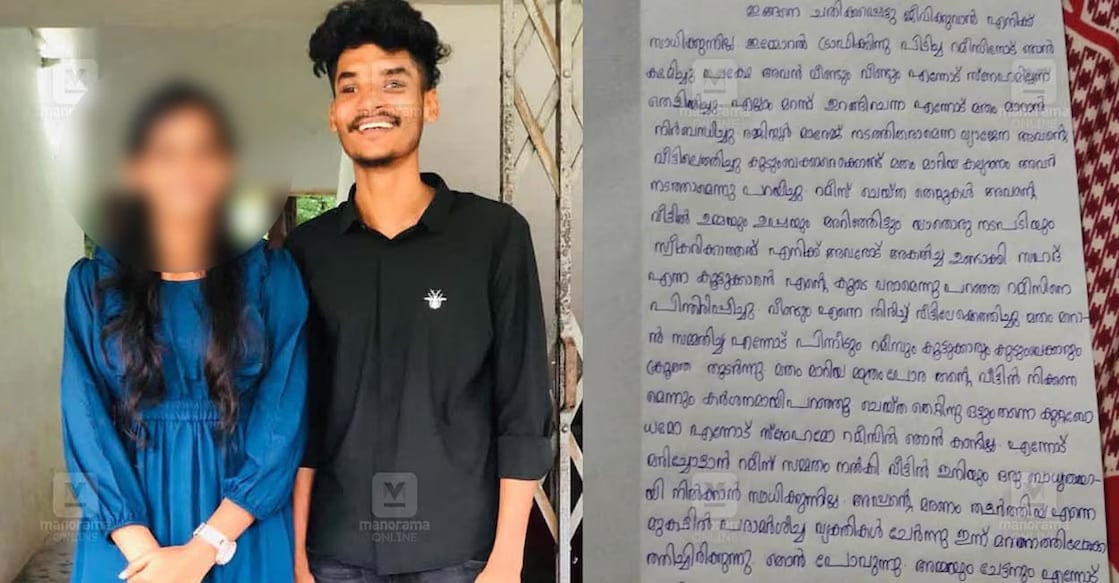 ഇങ്ങനെ ചതിക്കപ്പെട്ടു ജീവിക്കുവാൻ എനിക്ക്
സാധിക്കുന്നില്ല. ഇമ്മോറൽ ട്രാഫിക്കിന്നു പിടിച്ച റമീസിനോട് ഞാൻ
ക്ഷമിച്ചു പക്ഷേ അവൻ വീണ്ടും വീണ്ടും എന്നോട് സ്നേഹമില്ലെന്ന്
തെളിയിച്ചു. എല്ലാം മറന്ന് ഇറങ്ങിചെന്ന എന്നോട് മതം മാറാൻ
നിർബന്ധിച്ചു. രജിസ്റ്റർ മാരേജ് നടത്തിതരാമെന്ന വ്യാജേന അവന്റെ
വീട്ടിലെത്തിച്ചു കുടുംബക്കാരെക്കൊണ്ട് മതം മാറിയ കല്യാണം അവർ
നടത്താമെന്നു പറയിച്ചു. റമീസ് ചെയ്ത തെറ്റുകൾ അവന്റെ
വീട്ടിൽ ഉമ്മയും ഉപ്പയും അറിഞ്ഞിട്ടും യാതൊരു നടപടിയും
സ്വീകരിക്കാത്തത് എനിക്ക് അവരോട് അകൽച്ച ഉണ്ടാക്കി. സഹദ്
എന്ന കൂട്ടുക്കാരൻ എന്റെ കൂടെ വരാമെന്നു പറഞ്ഞ റമീസിനെ
പിന്തിരിപ്പിച്ചു. വീണ്ടും എന്നെ തിരിച്ച് വീട്ടിലേക്കെത്തിച്ചു മതം മാറാ-
ൻ സമ്മതിച്ച എന്നോട് പിന്നീടും റമീസും കൂട്ടുക്കാരും കുടുംബക്കാരും
ക്രൂരത തുടർന്നു. മതം മാറിയാൽ മാത്രം പോര തന്റെ വീട്ടിൽ നിക്കണ
മെന്നും കർശനമായി പറഞ്ഞു. ചെയ്ത തെറ്റിനു ഒട്ടുംതന്നെ കുറ്റബോ
ധമോ എന്നോട് സ്നേഹമോ റമീസിൽ ഞാൻ കണ്ടില്ല. എന്നോട്
മരിച്ചോളാൻ റമീസ് സമ്മതം നൽകി. വീട്ടിൽ ഇനിയും ഒരു ബാധ്യതയാ-
യി നിൽക്കാൻ സാധിക്കുന്നില്ല. അപ്പന്റെ മരണം തളർത്തിയ എന്നെ
മുകളിൽ പരാമർശിച്ച വ്യക്തികൾ ചേർന്നു ഇന്ന് മരണത്തിലേക്ക്
തള്ളിച്ചിരിക്കുന്നു. ഞാൻ പോവുന്നു. അമ്മയും ചേട്ടനും എന്നോട്
manorama
ONLINE